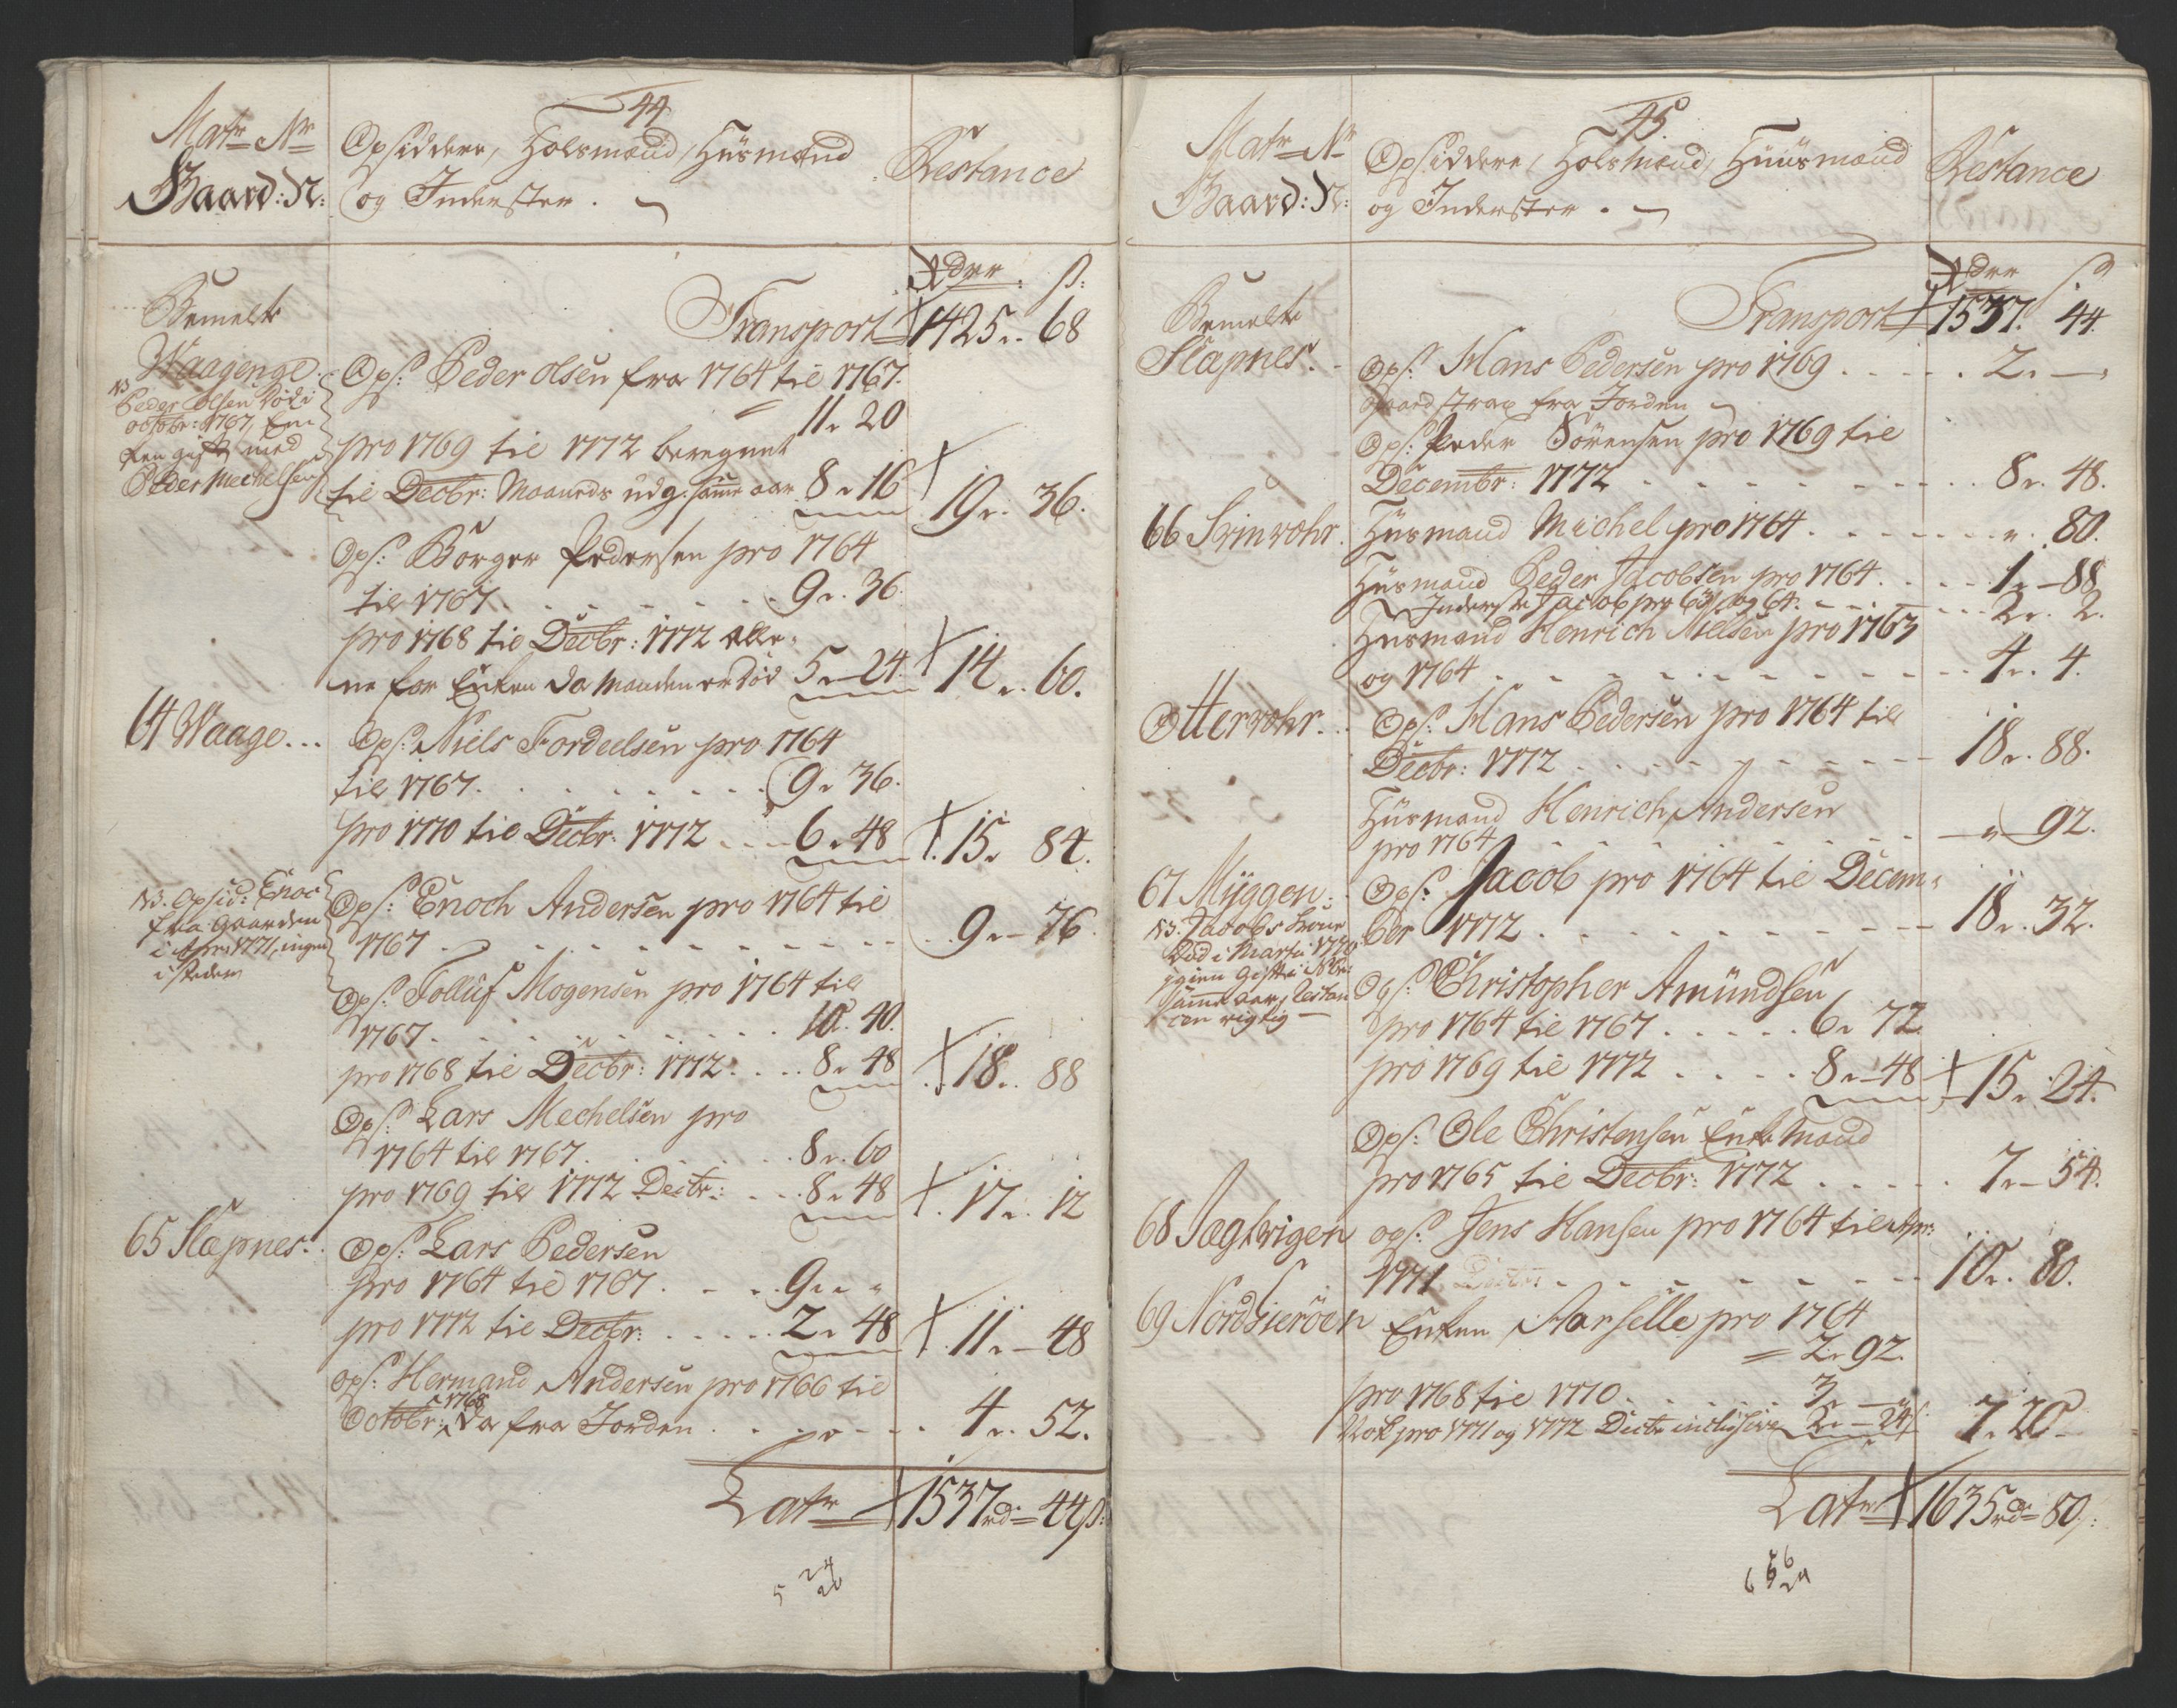 44
Matr Nr
Gaard: N:
Opsiddere, Holsmænd, Husmænd
og Inderster.
Restance
Rdrr. ß:
Bemelte
Transport 1425 r. 68
Waagenge.
Ops: Peder Olsen fra 1764 til 1767.
11 r 20
NB
Peder Olsen død i
octobr: 1767, En-
ken gift med
Peder Mechelsen
pro 1769 til 1772 beregnet
til Decbr: Maaneds udg: samme aar 8 r 16
19 r. 36.
Ops: Börger Pedersen pro 1764
til 1767 . . . 9 r. 36.
pro 1768 til Decbr: 1772 alle-
ne for Enken da Manden er død 5 r 24
14 r. 60.
64 Waage . . .
Ops: Niels Fordeelsen pro 1764
til 1767. . . . 9 r 36.
pro 1770 til Decbr. 1772 . . . 6 r 48
15 r 84.
NB. Opsid: Enoc
fra Gaarden
i Apr: 1771, ingen
i steden
Ops: Enoch Andersen pro 1764 til
1767 . . . 9 r - 76.
Ops: Folluf Mogensen pro 1764 til
1767 . . . 10. 40.
pro 1768 til Decbr: 1772 . . . 8 r 48
18 r. 88
Ops: Lars Mechelsen pro
1764 til 1767. . . . 8 r. 60
pro 1769 til 1772 Decbr: . . . 8 r 48
17 r. 12
65 Slæpnes.
Ops: Lars Pedersen
pro 1764 til 1767 . . . 9 r. "
pro 1772 til Decbr: . . . 2 r 48
11 r - 48
ops: Hermand Andersen pro 1766 til
Octobr: 1768 da fra Jorden . . . 4 r. 52.
Latr 1537 rd = 44 ß:
24
5 20
45.
Matr Nr
Gaard: N:
Opsiddere, Holsmænd, Huusmænd
og Inderster. -
Restance
Rdrr ß
Bemelte
Transport 1537. 44.
Slæpnes. -
Ops: Hans Pedersen pro 1769 . . . 2 r. -
fra Jorden
Ops: Peder Sörensen pro 1769 til
Decembr: 1772 . . . 8 r. 48.
66 Svinvohr.
Husmand Michel pro 1764 . . . " r. 80.
Husmand Peder Jacobsen pro 1764 . . . 1 r - 88
Inderste Jacob pro 63 og 64. . . . 2 r. 2.
Husmand Henrich Nielsen pro 1763
og 1764 . . . 4 r. 4.
Ottervohr. . .
Ops: Hans Pedersen pro 1764 til
Decbr: 1772 . . . 18 r. 88.
Husmand Henrich Andersen
pro 1764 . . . " 92.
67 Myggen. :
Ops: Jacob pro 1764 til Decem-
ber 1772 . . . 18 r. 32.
NB. Jacobs kone
død i Martii 1772
igien gift i Nbr:
samme aar, Restan
cen rigtig -
Ops: Christopher Amundsen
pro 1764 til 1767 . . . 6 r 72
pro 1769 til 1772 . . . 8 r - 48
15 r. 24.
Ops: Ole Christensen Enkemand
pro 1765 til Decbr: 1772 . . . 7 r - 54.
68 Jægtvigen
ops: Jens Hansen pro 1764 til Apr:
1771 . . . 10 r. 80.
69 Nordsierøen
Enken Aarselle pro 1764
= 2 r 92.
pro 1768 til 1770 . . . 3 r - "
Nok pro 1771 og 1772 Decbr inclusive 2 r - 24
7 r 20
Latr 1635 rd = 80 ß: